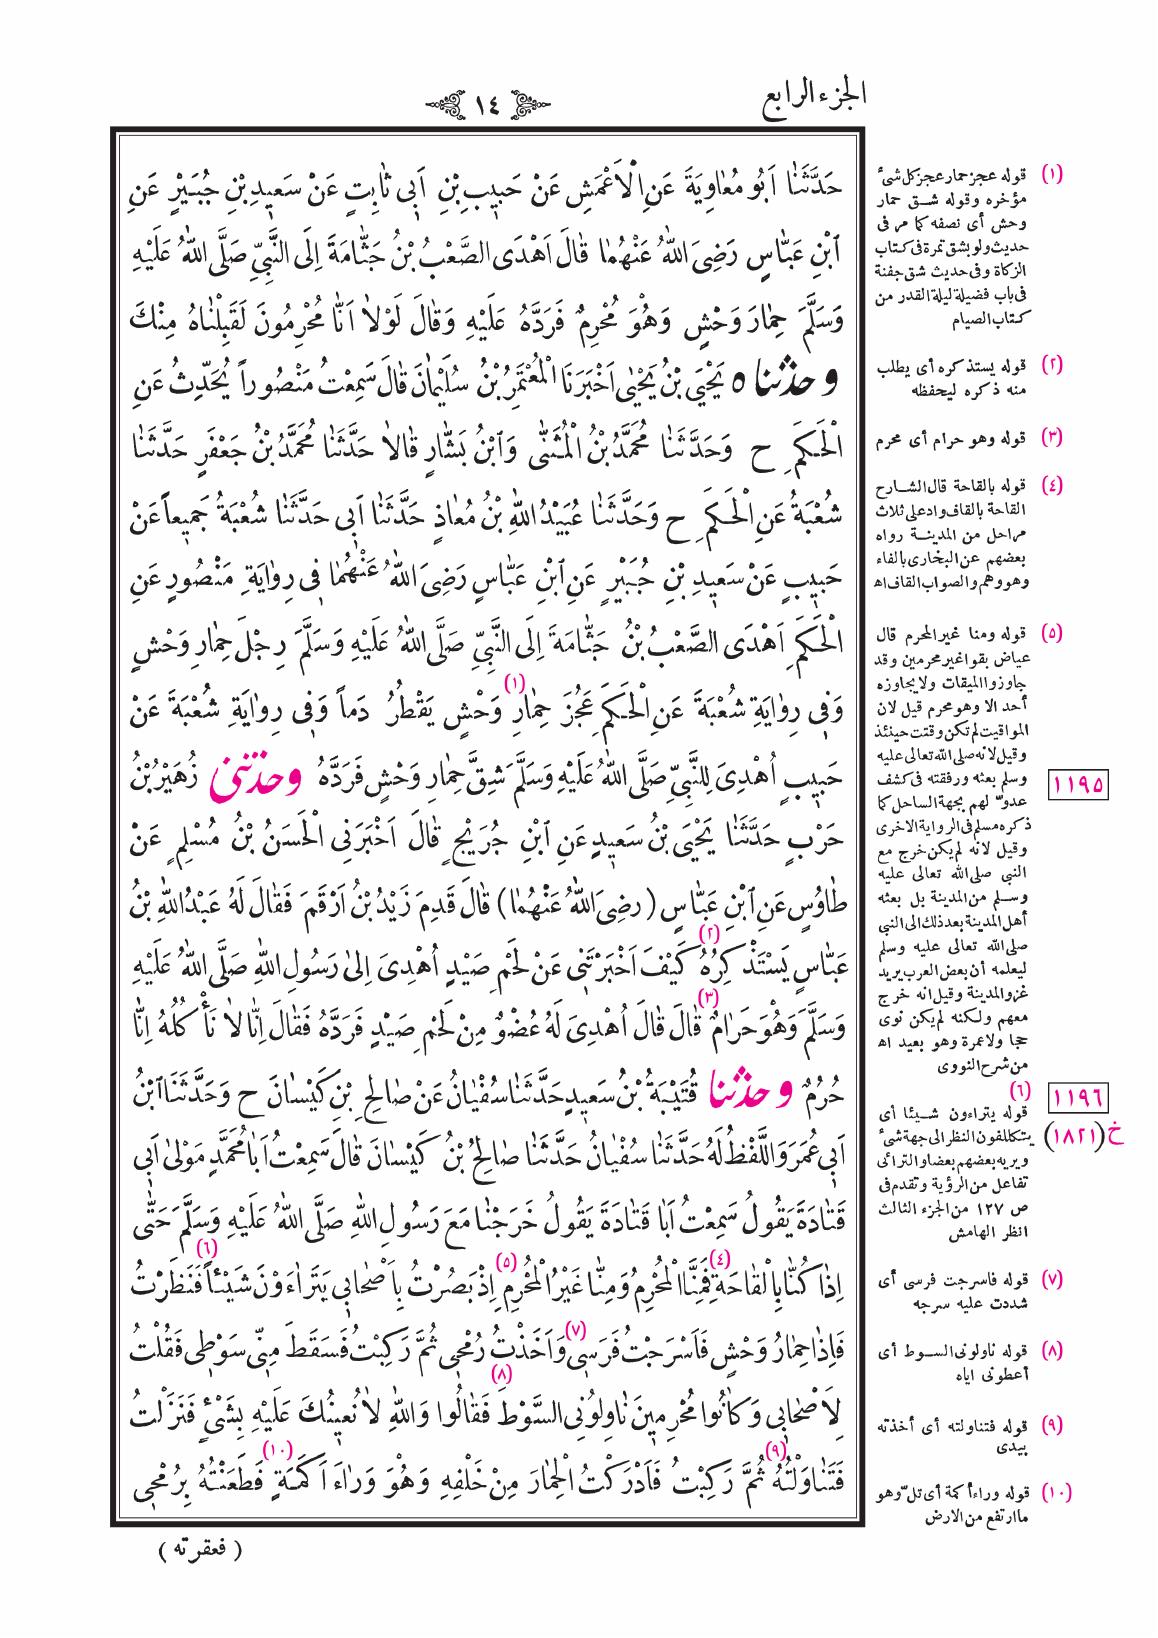 الجزء الرابع
١٤
حَدَّثَنَا أَبُو مُعَاوِيَةَ عَنِ الْأَعْمَشِ عَنْ حَبِيبِ بْنِ أَبِي ثَابِتٍ عَنْ سَعِيدِ بْنِ جُبَيْرٍ عَنِ
ابْنِ عَبَّاسٍ رَضِيَ اللهُ عَنْهُمَا قَالَ أَهْدَى الصَّعْبُ بْنُ جَثَّامَةَ إِلَى النَّبِيِّ صَلَّى اللهُ عَلَيْهِ
وَسَلَّمَ حِمَارَ وَحْشٍ وَهُوَ مُحْرِمٌ فَرَدَّهُ عَلَيْهِ وَقَالَ لَوْلَا أَنَّا مُحْرِمُونَ لَقَبِلْنَاهُ مِنْكَ
وحدثنا ٥ يَحْيَى بْنُ يَحْيَى أَخْبَرَنَا الْمُعْتَمِرُ بْنُ سُلَيْمَانَ قَالَ سَمِعْتُ مَنْصُوراً يُحَدِّثُ عَنِ
الْحَكَمِ ح وَحَدَّثَنَا مُحَمَّدُ بْنُ الْمُثَنَّى وَابْنُ بَشَّارٍ قَالَا حَدَّثَنَا مُحَمَّدُ بْنُ جَعْفَرٍ حَدَّثَنَا
شُعْبَةُ عَنِ الْحَكَمِ ح وَحَدَّثَنَا عُبَيْدُ اللهِ بْنُ مُعَاذٍ حَدَّثَنَا أَبِي حَدَّثَنَا شُعْبَةُ جَمِيعاً عَنْ
حَبِيبٍ عَنْ سَعِيدِ بْنِ جُبَيْرٍ عَنِ ابْنِ عَبَّاسٍ رَضِيَ اللهُ عَنْهُمَا فِي رِوَايَةِ مَنْصُورٍ عَنِ
الْحَكَمِ أَهْدَى الصَّعْبُ بْنُ جَثَّامَةَ إِلَى النَّبِيِّ صَلَّى اللهُ عَلَيْهِ وَسَلَّمَ رِجْلَ حِمَارِ وَحْشٍ
وَفِي رِوَايَةِ شُعْبَةَ عَنِ الْحَكَمِ عَجُزَ حِمَارِ (١) وَحْشٍ يَقْطُرُ دَماً وَفِي رِوَايَةِ شُعْبَةَ عَنْ
حَبِيبٍ أُهْدِيَ لِلنَّبِيِّ صَلَّى اللهُ عَلَيْهِ وَسَلَّمَ شِقُّ حِمَارِ وَحْشٍ فَرَدَّهُ وحدثني زُهَيْرُ بْنُ
حَرْبٍ حَدَّثَنَا يَحْيَى بْنُ سَعِيدٍ عَنِ ابْنِ جُرَيْجٍ قَالَ أَخْبَرَنِي الْحَسَنُ بْنُ مُسْلِمٍ عَنْ
طَاوُسٍ عَنِ ابْنِ عَبَّاسٍ (رضِيَ اللهُ عَنْهُمَا) قَالَ قَدِمَ زَيْدُ بْنُ أَرْقَمَ فَقَالَ لَهُ عَبْدُ اللهِ بْنُ
عَبَّاسٍ يَسْتَذْكِرُهُ (٢) كَيْفَ أَخْبَرْتَنِي عَنْ لَحْمِ صَيْدٍ أُهْدِيَ إِلَى رَسُولِ اللهِ صَلَّى اللهُ عَلَيْهِ
وَسَلَّمَ وَهُوَ حَرَامٌ (٣) قَالَ قَالَ أُهْدِيَ لَهُ عُضْوٌ مِنْ لَحْمِ صَيْدٍ فَرَدَّهُ فَقَالَ إِنَّا لَا نَأْكُلُهُ إِنَّا
حُرُمٌ وحدثنا قُتَيْبَةُ بْنُ سَعِيدٍ حَدَّثَنَا سُفْيَانُ عَنْ صَالِحِ بْنِ كَيْسَانَ ح وَحَدَّثَنَا ابْنُ
أَبِي عُمَرَ وَاللَّفْظُ لَهُ حَدَّثَنَا سُفْيَانُ حَدَّثَنَا صَالِحُ بْنُ كَيْسَانَ قَالَ سَمِعْتُ أَبَا مُحَمَّدٍ مَوْلَى أَبِي
قَتَادَةَ يَقُولُ سَمِعْتُ أَبَا قَتَادَةَ يَقُولُ خَرَجْنَا مَعَ رَسُولِ اللهِ صَلَّى اللهُ عَلَيْهِ وَسَلَّمَ حَتَّى
إِذَا كُنَّا بِالْقَاحَةِ (٤) فَمِنَّا الْمُحْرِمُ وَمِنَّا غَيْرُ الْمُحْرِمِ (٥) إِذْ بَصُرْتُ بِأَصْحَابِي يَتَرَاءَوْنَ (٦) شَيْئاً فَنَظَرْتُ
فَإِذَا حِمَارُ وَحْشٍ فَأَسْرَجْتُ فَرَسِي (٧) وَأَخَذْتُ رُمْحِي ثُمَّ رَكِبْتُ فَسَقَطَ مِنِّي سَوْطِي فَقُلْتُ
لِأَصْحَابِي وَكَانُوا مُحْرِمِينَ نَاوِلُونِي (٨) السَّوْطَ فَقَالُوا وَاللهِ لَا نُعِينُكَ عَلَيْهِ بِشَيْءٍ فَنَزَلْتُ
فَتَنَاوَلْتُهُ (٩) ثُمَّ رَكِبْتُ فَأَدْرَكْتُ الْحِمَارَ مِنْ خَلْفِهِ وَهُوَ وَرَاءَ أَكَمَةٍ (١٠) فَطَعَنْتُهُ بِرُمْحِي
( فعقرته )
(١) قوله عجز حمار عجز كل شئ
مؤخره وقوله شق حمار
وحش أى نصفه كما مر فى
حديث ولو بشق تمرة فى كتاب
الزكاة وفى حديث شق جفنة
فى باب فضيلة ليلة القدر من
كتاب الصيام
(٢) قوله يستذكره أى يطلب
منه ذكره ليحفظه
(٣) قوله وهو حرام أى محرم
(٤) قوله بالقاحة قال الشارح
القاحة بالقاف واد على ثلاث
مراحل من المدينة رواه
بعضهم عن البخارى بالفاء
وهو وهم والصواب القاف اه
(٥) قوله ومنا غير المحرم قال
عياض بقوا غير محرمين وقد
جاوزوا الميقات ولا يجاوزه
أحد الا وهو محرم قيل لان
المواقيت لم تكن وقتت حينئذ
وقيل لانه صلى الله تعالى عليه
وسلم بعثه ورفقته فى كشف
عدوّ لهم بجهة الساحل كما
ذكره مسلم فى الرواية الاخرى
وقيل لانه لم يكن خرج مع
النبى صلى الله تعالى عليه
وسلم من المدينة بل بعثه
أهل المدينة بعد ذلك الى النبى
صلى الله تعالى عليه وسلم
ليعلمه أن بعض العرب يريد
غزو المدينة وقيل انه خرج
معهم ولكنه لم يكن نوى
حجا ولا عمرة وهو بعيد اه
من شرح النووى
(٦)
قوله يتراءون شيئا أى
يتكلفون النظر الى جهة شئ
ويريه بعضهم بعضا والترائى
تفاعل من الرؤية وتقدم فى
ص ١٢٧ من الجزء الثالث
انظر الهامش
(٧) قوله فاسرجت فرسى أى
شددت عليه سرجه
(٨) قوله ناولونى السوط أى
أعطونى اياه
(٩) قوله فتناولته أى أخذته
بيدى
(١٠) قوله وراء أكمة أى تلّ وهو
ما ارتفع من الارض
١١٩٥
١١٩٦
خ (١٨٢١)